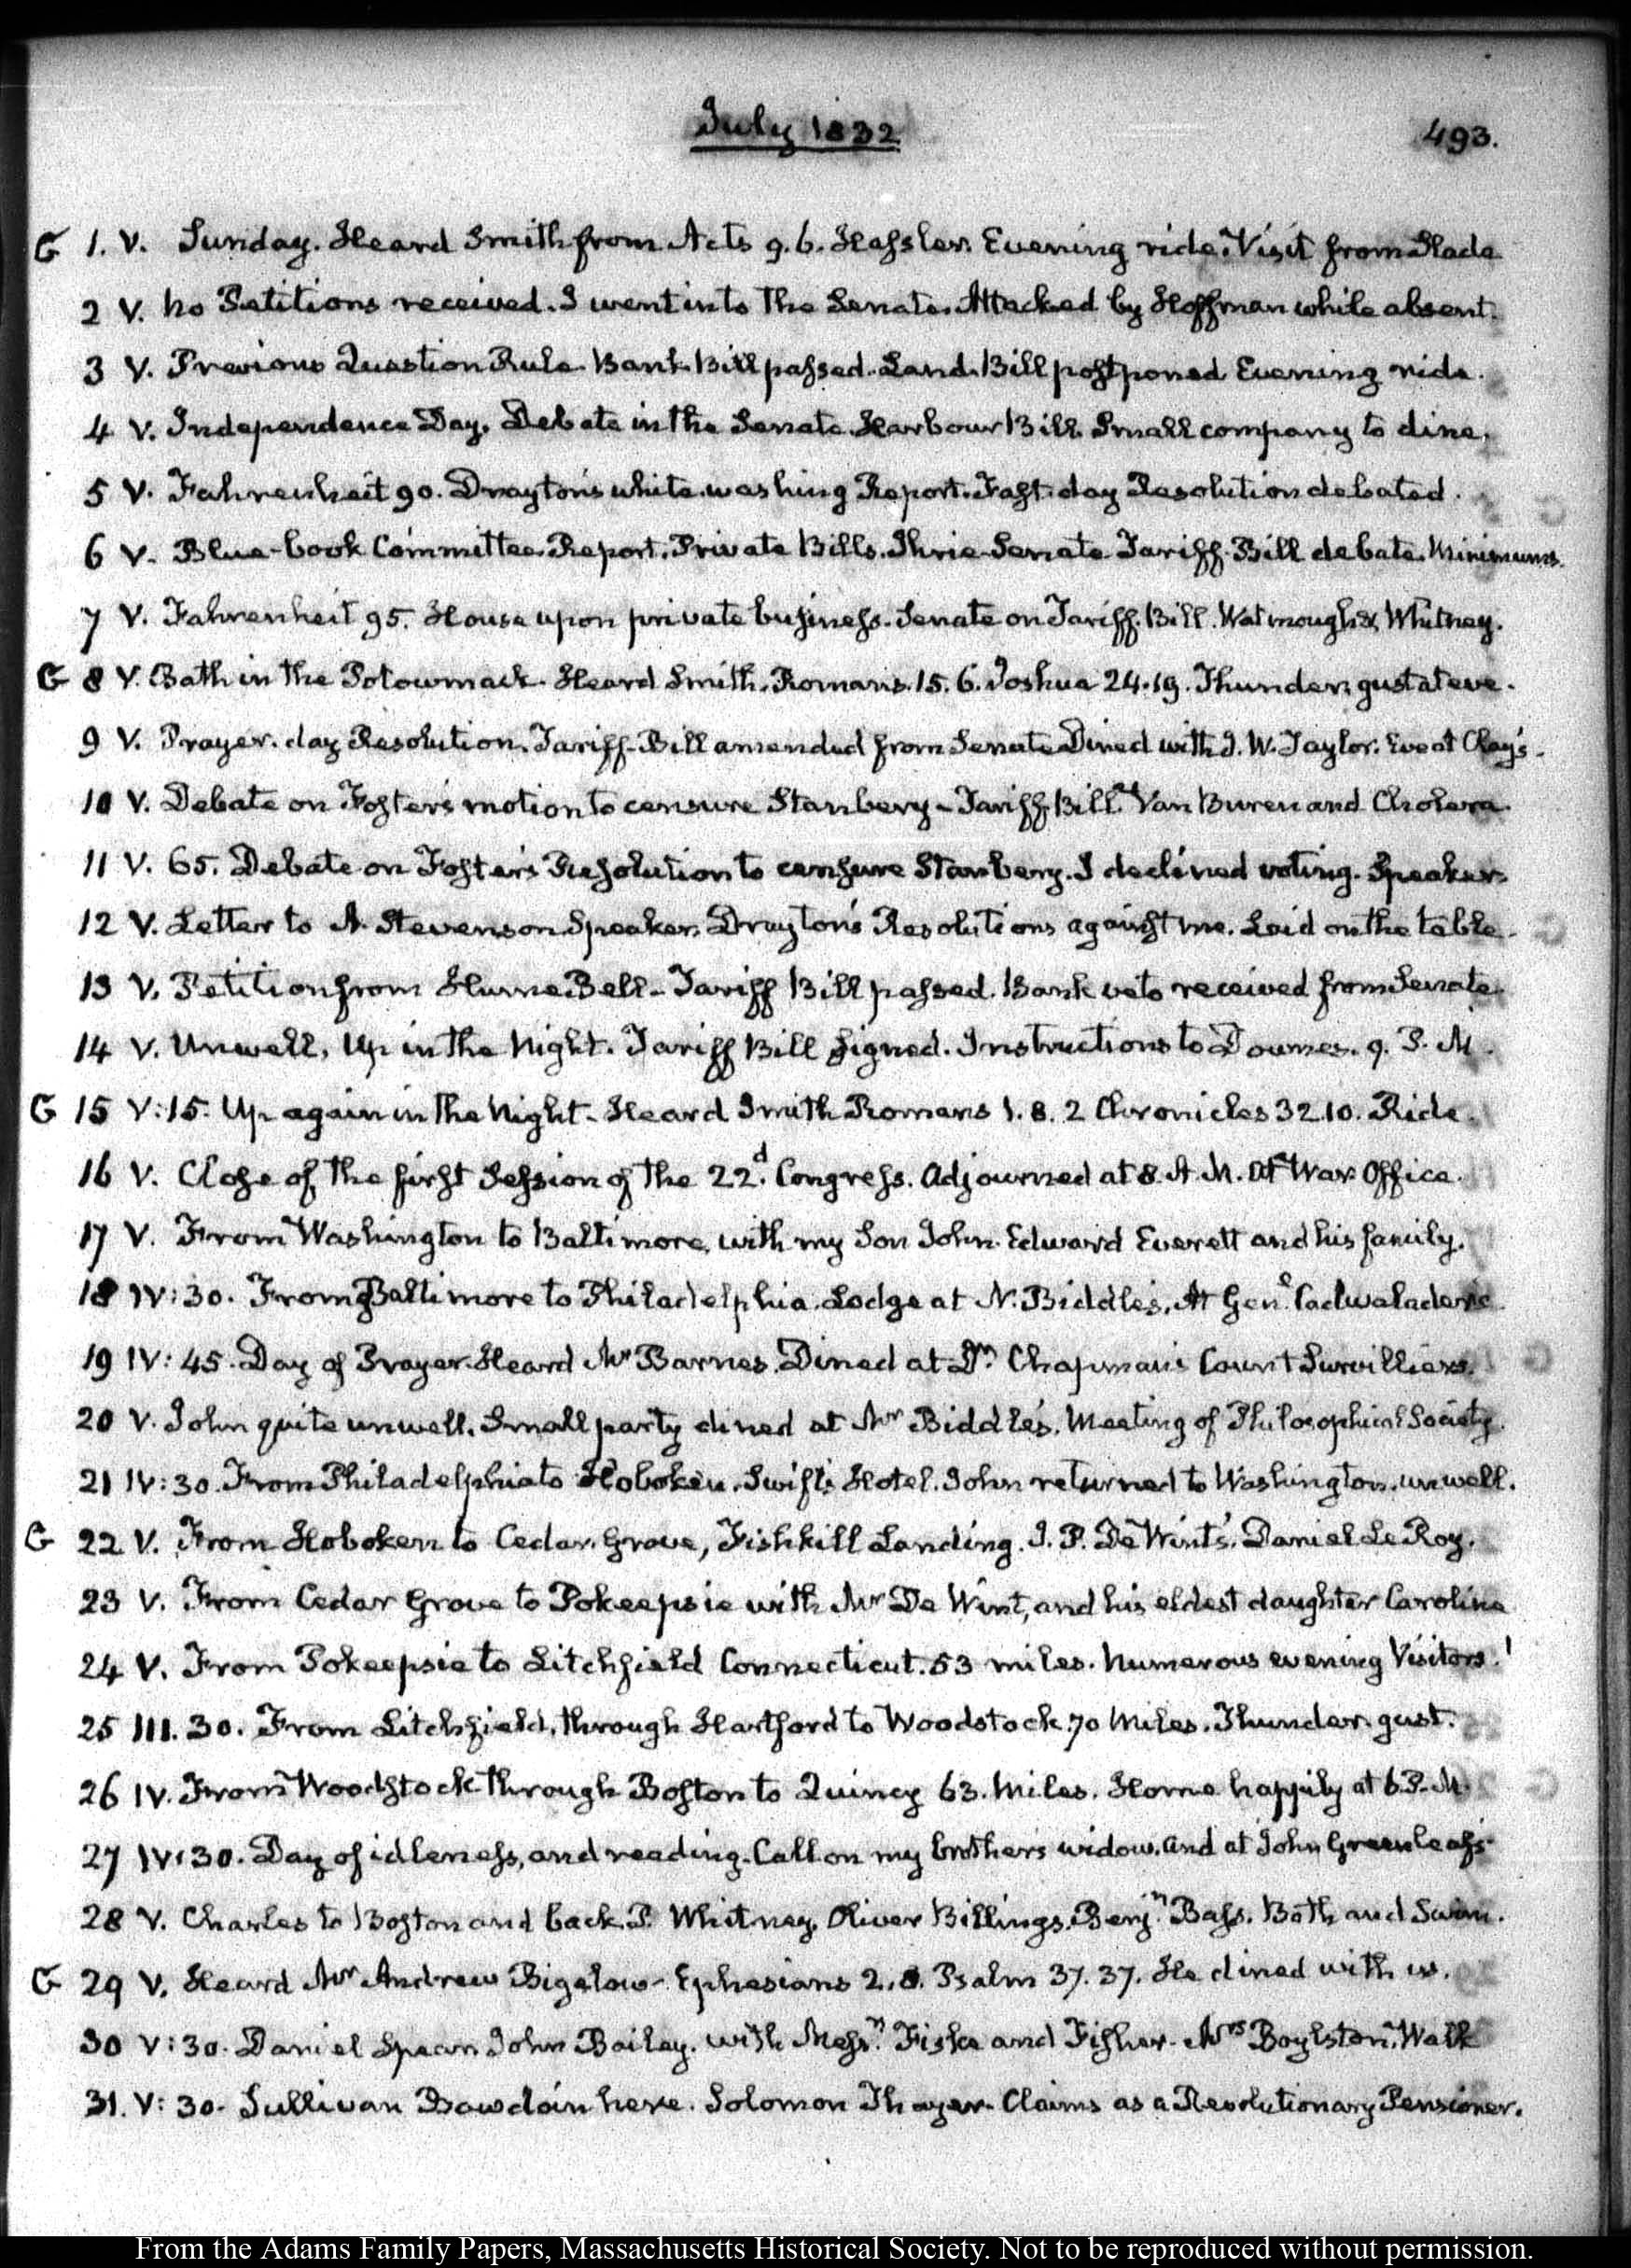 July 1832
493.
G 1. V. Sunday. Heard Smith from Acts 9. 6. Hassler. Evening ride. Visit from Slade
2 V. No Petitions received. I went into the Senate. Attacked by Hoffman while absent.
3 V. Previous Question Rule. Bank Bill passed. Land Bill postponed Evening ride.
4 V. Independence Day. Debate in the Senate. Harbour Bill. Small company to dine.
5 V. Fahrenheit 90. Drayton's white-washing Report. Fast-day Resolution debated.
6 V. Blue-book Committee Report. Private Bills. Senate Tariff Bill debate. Minimums.
7 V. Fahrenheit 95. House upon private business. Senate on Tariff Bill. Watmough & Whitney.
G 8 V. Bath in the Potowmack. Heard Smith. Romans. 15. 6. Joshua 24. 19. Thunder gust at eve.
9 V. Prayer-day Resolution. Tariff-Bill amended from Senate Dined with J. W. Taylor. Eve at Clay's.
10 V. Debate on Foster's motion to censure Stanbery – Tariff Bill. Van Buren and Cholera.
11 V. 65. Debate on Foster's Resolution to censure Stanbery. I declined voting. Speaker
12 V. Letter to A. Stevenson Speaker. Drayton's Resolutions against me. Laid on the table.
13 V. Petition from Bell – Tariff Bill passed. Bank veto received from Senate
14 V. Unwell, Up in the Night. Tariff Bill signed. Instructions to Downes. 9. P. M.
G 15 V: 15. Up again in the Night – Heard Smith Romans 1. 8. 2 Chronicles 32. 10. Ride.
16 V. Close of the first Session of the 22d. Congress. Adjourned at 8. A. M. At War Office.
17 V. From Washington to Baltimore, with my Son John. Edward Everett and his family.
18 IV: 30. From Baltimore to Philadelphia. Lodge at N. Biddle's. At Genl. Cadwalader's
19 IV: 45. Day of Prayer. Heard Mr Barnes. Dined at Dr. Chapman's Count Survilliers.
20 V. John quite unwell. Small party dined at Mr Biddle's. Meeting of Philosophical Society.
21 IV: 30. From Philadelphia to Hoboken. Swift's Hotel. John returned to Washington. unwell.
G 22 V. From Hoboken to Cedar Grove, Fishkill Landing. J. P. De Wint's. Daniel Le Roy.
23 V. From Cedar Grove to Pokeepsie with Mr De Wint, and his eldest daughter Caroline
24 V. From Pokeepsie to Litchfield Connecticut. 53 miles. Numerous evening Visitors.
25 III. 30. From Litchfield, through Hartford to Woodstock 70 Miles. Thunder gust.
26 IV. From Woodstock through Boston to Quincy 63. Miles. Home happily at 6. P. M.
27 IV: 30. Day of idleness, and reading. Call on my brothers widow, and at John Greenleaf's
28 V. Charles to Boston and back. P. Whitney, Oliver Billings. Benjn. Bass. Bath and Swim.
G 29 V. Heard Mr Andrew Bigelow – Ephesians 2. 8. Psalm 37. 37. He dined with us.
30 V: 30. Daniel Spear. John Bailey. with Messrs. Fiske and Fisher. Mrs Boylston. Walk
31. V: 30. Sullivan Bowdoin here. Solomon Thayer. Claims as a Revolutionary Pensioner.
From the Adams Family Papers, Massachusetts Historical Society. Not to be reproduced without permission.